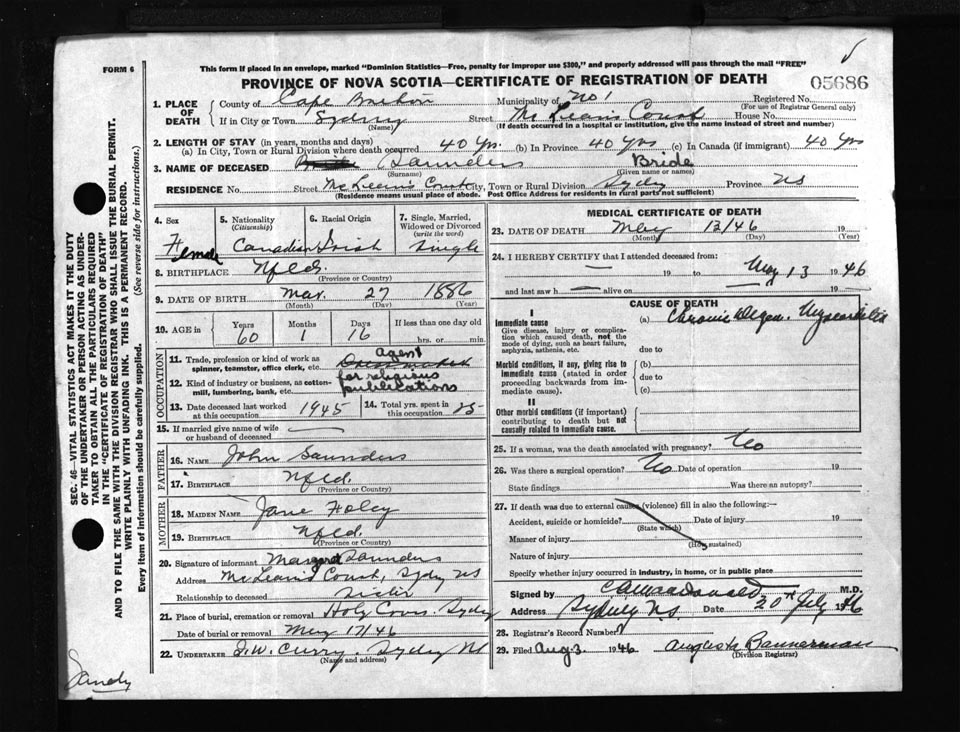 FORM 6
This form if placed in an envelope, marked "Dominion Statistics—Free, penalty for improper use $300," and properly addressed will pass through the mail "FREE"
PROVINCE OF NOVA SCOTIA—CERTIFICATE OF REGISTRATION OF DEATH
05686
1. PLACE OF DEATH
County of Cape Breton Municipality of No 1 Registered No.
(For use of Registrar General only)
If in City or Town Sydney Street McLean's Court House No.
(Name) (If death occurred in a hospital or institution, give the name instead of street and number)
2. LENGTH OF STAY (in years, months and days)
(a) In City, Town or Rural Division where death occurred 40 Yrs. (b) In Province 40 yrs (c) In Canada (if immigrant) 40 yrs
3. NAME OF DECEASED Saunders Bride
(Surname) (Given name or names)
RESIDENCE No. Street McLean's Court City, Town or Rural Division Sydney Province NS
(Residence means usual place of abode. Post Office Address for residents in rural parts not sufficient)
4. Sex Female
5. Nationality (Citizenship) Canadian
6. Racial Origin Irish
7. Single, Married, Widowed or Divorced (write the word) Single
8. BIRTHPLACE Nfld.
(Province or Country)
9. DATE OF BIRTH Mar. 27 1886
(Month) (Day) (Year)
10. AGE in Years 60 Months 1 Days 16 If less than one day old hrs. or min.
OCCUPATION
11. Trade, profession or kind of work as spinner, teamster, office clerk, etc. Agent
12. Kind of industry or business, as cotton-mill, lumbering, bank, etc. for religious publications
13. Date deceased last worked at this occupation 1945
14. Total yrs. spent in this occupation 25
15. If married give name of wife or husband of deceased —
FATHER
16. NAME John Saunders
17. BIRTHPLACE Nfld.
(Province or Country)
MOTHER
18. MAIDEN NAME Jane Foley
19. BIRTHPLACE Nfld.
(Province or Country)
20. Signature of informant Margaret Saunders
Address McLean's Court, Sydney NS
Relationship to deceased Sister
21. Place of burial, cremation or removal Holy Cross Sydney
Date of burial or removal May 17/46
22. UNDERTAKER Curry. Sydney NS
(Name and address)
MEDICAL CERTIFICATE OF DEATH
23. DATE OF DEATH May 13/46 19
(Month) (Day) (Year)
24. I HEREBY CERTIFY that I attended deceased from:
— 19 to May 13 1946
and last saw h — alive on — 19
CAUSE OF DEATH
I
Immediate cause (a) Chronic Degen. Myocarditis
Give disease, injury or complication which caused death, not the mode of dying, such as heart failure, asphyxia, asthenia, etc. due to
Morbid conditions, if any, giving rise to immediate cause (stated in order proceeding backwards from immediate cause). (b)
due to
(c)
II
Other morbid conditions (if important) contributing to death but not causally related to immediate cause.
25. If a woman, was the death associated with pregnancy? No
26. Was there a surgical operation? No Date of operation 19
State findings Was there an autopsy?
27. If death was due to external causes (violence) fill in also the following:—
Accident, suicide or homicide? Date of injury 19
(State which)
Manner of injury
(How sustained)
Nature of injury
Specify whether injury occurred in industry, in home, or in public place
Signed by M.D.
Address Sydney N.S. Date 20th July 1946
28. Registrar's Record Number
29. Filed Aug 3 1946 Augusta Bannerman
(Division Registrar)
SEC. 46—VITAL STATISTICS ACT MAKES IT THE DUTY
OF THE UNDERTAKER OR PERSON ACTING AS UNDER-
TAKER TO OBTAIN ALL THE PARTICULARS REQUIRED
IN THE "CERTIFICATE OF REGISTRATION OF DEATH"
AND TO FILE THE SAME WITH THE DIVISION REGISTRAR WHO SHALL ISSUE THE BURIAL PERMIT.
WRITE PLAINLY WITH UNFADING INK. THIS IS A PERMANENT RECORD.
Every item of information should be carefully supplied. (See reverse side for instructions.)
Sandy